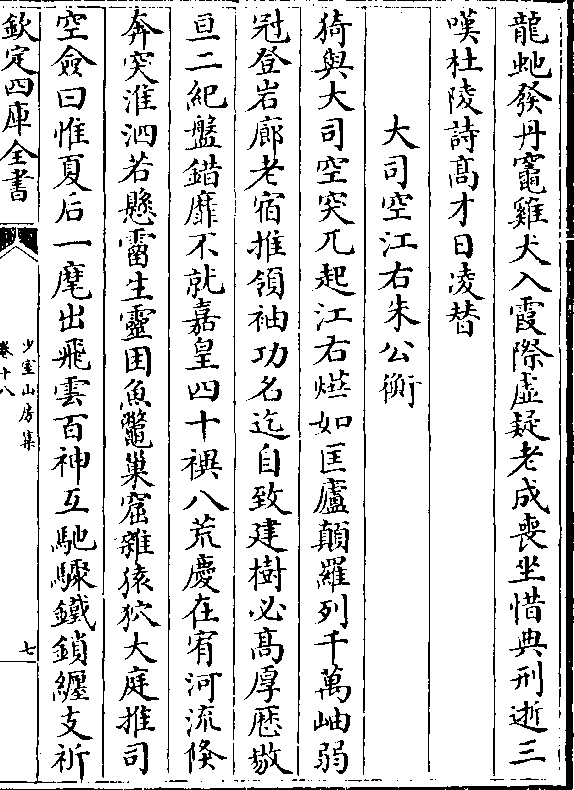 龍虵發丹竈雞犬入霞際虚疑老成喪坐惜典刑逝三
嘆杜陵詩髙才日凌替
大司空江右朱公衡
猗與大司空突兀起江右㷼如匡廬顛羅列千萬岫弱
冠登岩廊老宿推領袖功名迄自致建樹必髙厚歴敭
亘二紀盤錯靡不就嘉皇四十禩八荒慶在宥河流倏
奔突淮泗若懸霤生靈困魚鼈巢窟雜猿狖大庭推司
空僉曰惟夏后一麾出飛雲百神互馳驟鐵鎖纏支祈
欽定四庫全書
少室山房集
卷十八
七